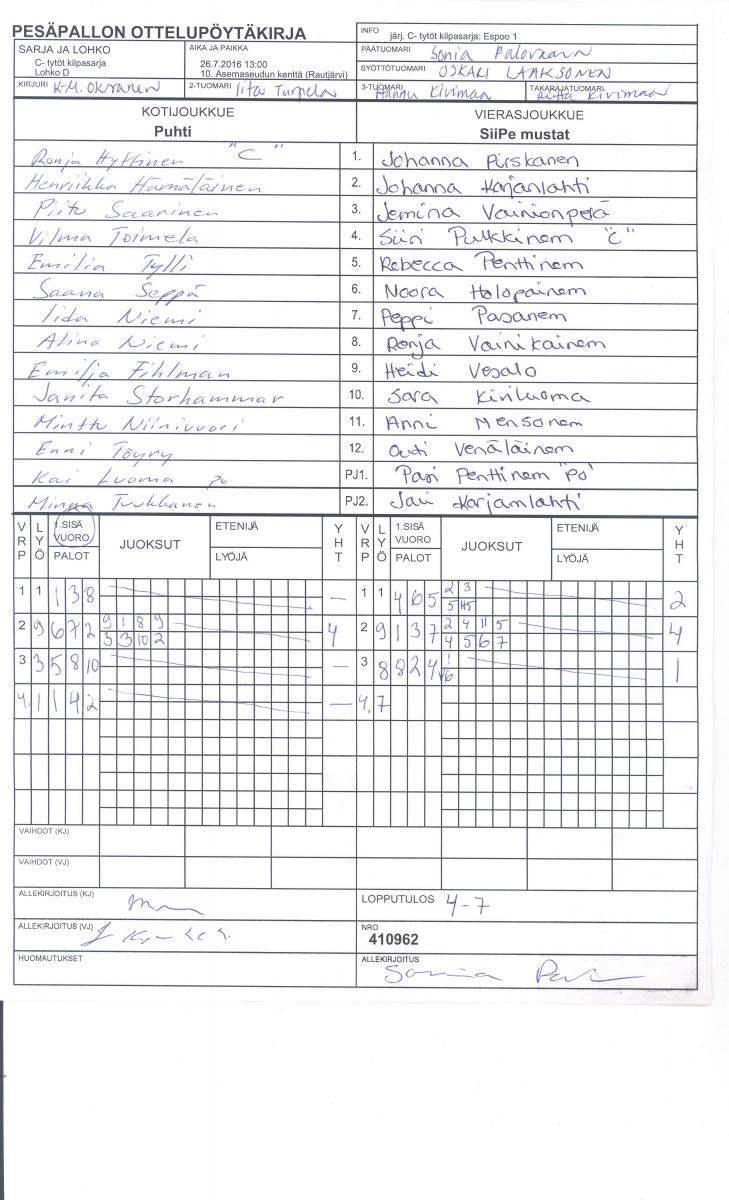 PESÄPALLON OTTELUPÖYTÄKIRJA
INFO järj. C- tytöt kilpasarja: Espoo 1
SARJA JA LOHKO
C- tytöt kilpasarja
Lohko D
AIKA JA PAIKKA
26.7.2016 13:00
10. Asemaseudun kenttä (Rautjärvi)
PÄÄTUOMARI Sonia
SYÖTTÖTUOMARI OSKARI LAAKSONEN
KIRJURI K-M. Oksanen
2-TUOMARI Iita
3-TUOMARI Hannu Kiviman
TAKARAJATUOMARI Kiviman
KOTIJOUKKUE
Puhti
VIERASJOUKKUE
SiiPe mustat
Ronja Hyttinen "C" 1. Johanna Pirskanen
Henriikka Hämäläinen 2. Johanna Karjanlahti
Piitu Saarinen 3. Jemina Vainionpää
Vilma Toimela 4. Siiri Pulkkinen "C"
Emilia Tylli 5. Rebecca Penttinen
Saana Seppä 6. Noora Holopainen
Iida Niemi 7. Peppi Pasanen
Alina Niemi 8. Ronja Vainikainen
Emilja Fihlman 9. Heidi Vesalo
Janita Storhammar 10. Sara Kiviluoma
Minttu Niinivuori 11. Anni Mensonen
Enni Töyry 12. Outi Venäläinen
Kai Luoma PO PJ1. Pasi Penttinen "PO"
Minna Tuukkanen PJ2. Jari Karjanlahti
VRP LYÖ 1.SISÄ VUORO PALOT JUOKSUT ETENIJÄ LYÖJÄ YHT VRP LYÖ 1.SISÄ VUORO PALOT JUOKSUT ETENIJÄ LYÖJÄ YHT
1 1 1 3 8 — 1 1 4 6 5 2 3 2
2 9 6 7 2 9 1 8 9 4 2 9 1 3 7 2 4 11 5 4
3 3 10 2 4 5 6 7
3 3 5 8 10 — 3 8 8 2 4 1 1
6
4. 1 1 4 2 — 4. 7
VAIHDOT (KJ)
VAIHDOT (VJ)
ALLEKIRJOITUS (KJ)
LOPPUTULOS 4-7
ALLEKIRJOITUS (VJ)
NRO
410962
HUOMAUTUKSET
ALLEKIRJOITUS Sonia